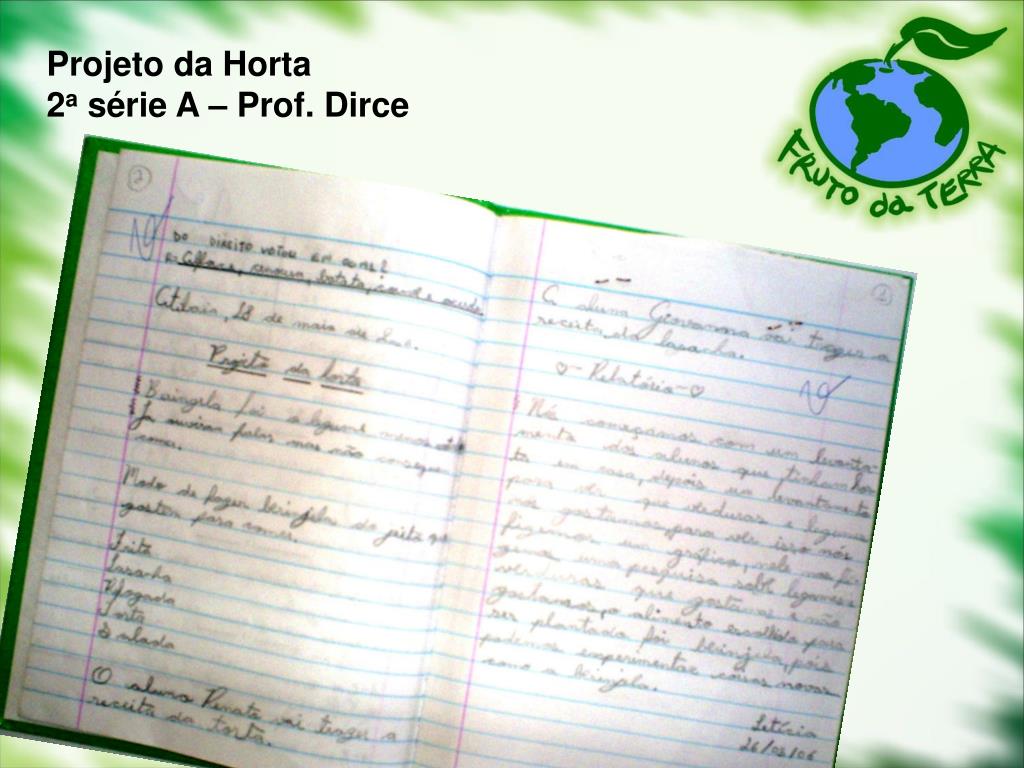 Projeto da Horta
2ª série A – Prof. Dirce
FRUTO da TERRA
2
DO DIREITO VOTOU EM COMO?
R: Alface, cenoura, batata, e
Atibaia, 18 de maio de
Projeto da horta
Beringela foi o legume menos
Ja ouviram falar mas não conseguem
comer.
Modo de fazer berinjela do jeito que
gostam para comer.
Frita
Lasanha
Refogada
Torta
Salada
O aluno Renato vai trazer a
receita da torta.
A aluna Giovanna vai trazer a
receita da lasanha.
Relatório
Nós começamos com um levanta-
mento dos alunos que tinham hor
ta em casa, depois um levantamento
para ver que verduras e legumes
nós gostamos, para ver isso nós
fizemos um gráfico, nele nos fi
zemos uma pesquisa sobre legumes
verduras que gostamos e não
gostamos, o alimento escolhido para
ser plantado foi berinjela, pois
podemos experimentar coisas novas
como a berinjela.
Letícia
26/05/06